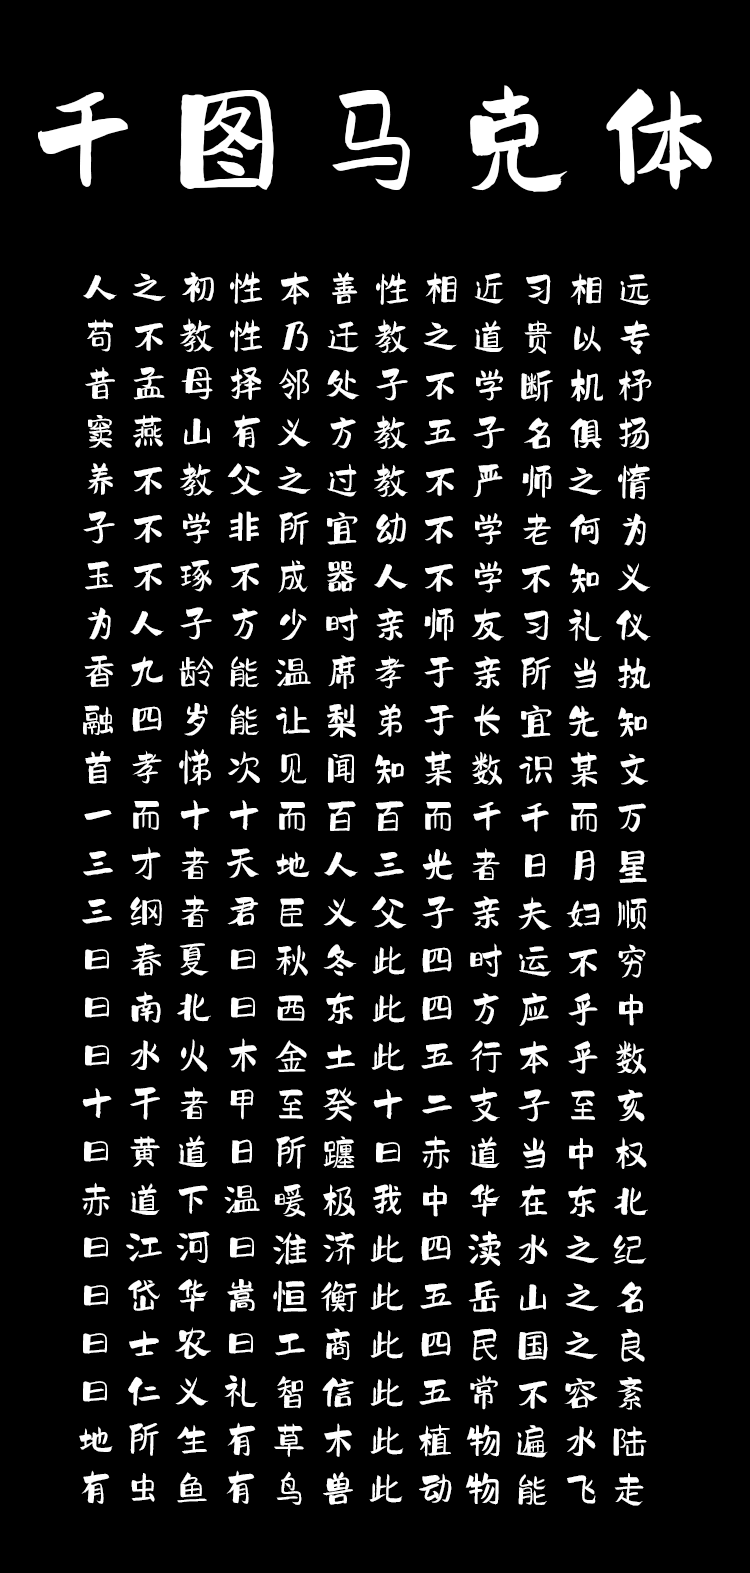 千图马克体
人之初性本善性相近习相远
苟不教性乃迁教之道贵以专
昔孟母择邻处子不学断机杼
窦燕山有义方教五子名俱扬
养不教父之过教不严师之惰
子不学非所宜幼不学老何为
玉不琢不成器人不学不知义
为人子方少时亲师友习礼仪
香九龄能温席孝于亲所当执
融四岁能让梨弟于长宜先知
首孝悌次见闻知某数识某文
一而十十而百百而千千而万
三才者天地人三光者日月星
三纲者君臣义父子亲夫妇顺
曰春夏曰秋冬此四时运不穷
曰南北曰西东此四方应乎中
曰水火木金土此五行本乎数
十干者甲至癸十二支子至亥
曰黄道日所躔曰赤道当中权
赤道下温暖极我中华在东北
曰江河曰淮济此四渎水之纪
曰岱华嵩恒衡此五岳山之名
曰士农曰工商此四民国之良
曰仁义礼智信此五常不容紊
地所生有草木此植物遍水陆
有虫鱼有鸟兽此动物能飞走